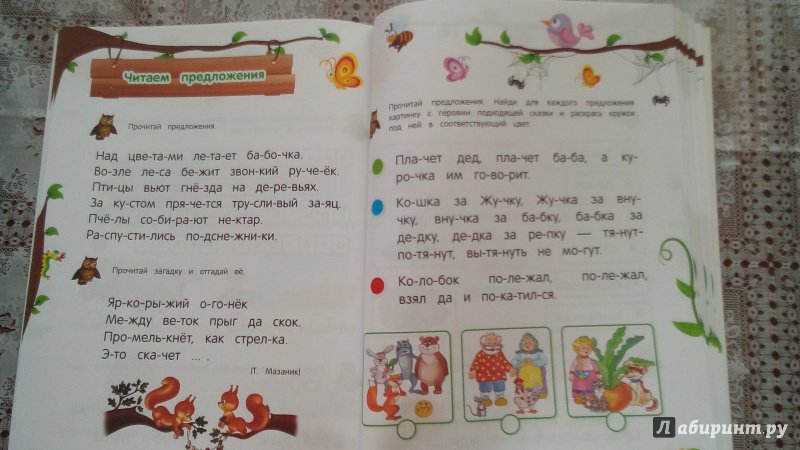 Читаем предложения
Прочитай предложения.
Над цве-та-ми ле-та-ет ба-бо-чка.
Во-зле ле-са бе-жит звон-кий ру-че-ёк.
Пти-цы вьют гнёз-да на де-ре-вьях.
За ку-стом пря-че-тся тру-сли-вый за-яц.
Пчё-лы со-би-ра-ют не-ктар.
Ра-спу-сти-лись по-дсне-жни-ки.
Прочитай загадку и отгадай её.
Яр-ко-ры-жий о-го-нёк
Ме-жду ве-ток прыг да скок.
Про-мель-кнёт, как стрел-ка.
Э-то ска-чет ... .
(Т. Мазаник)
Прочитай предложения. Найди для каждого предложения
картинку с героями подходящей сказки и раскрась кружок
под ней в соответствующий цвет.
Пла-чет дед, пла-чет ба-ба, а ку-
ро-чка им го-во-рит.
Ко-шка за Жу-чку, Жу-чка за вну-
чку, вну-чка за ба-бку, ба-бка за
де-дку, де-дка за ре-пку — тя-нут-
по-тя-нут, вы-тя-нуть не мо-гут.
Ко-ло-бок по-ле-жал, по-ле-жал,
взял да и по-ка-тил-ся.
Лабиринт.ру